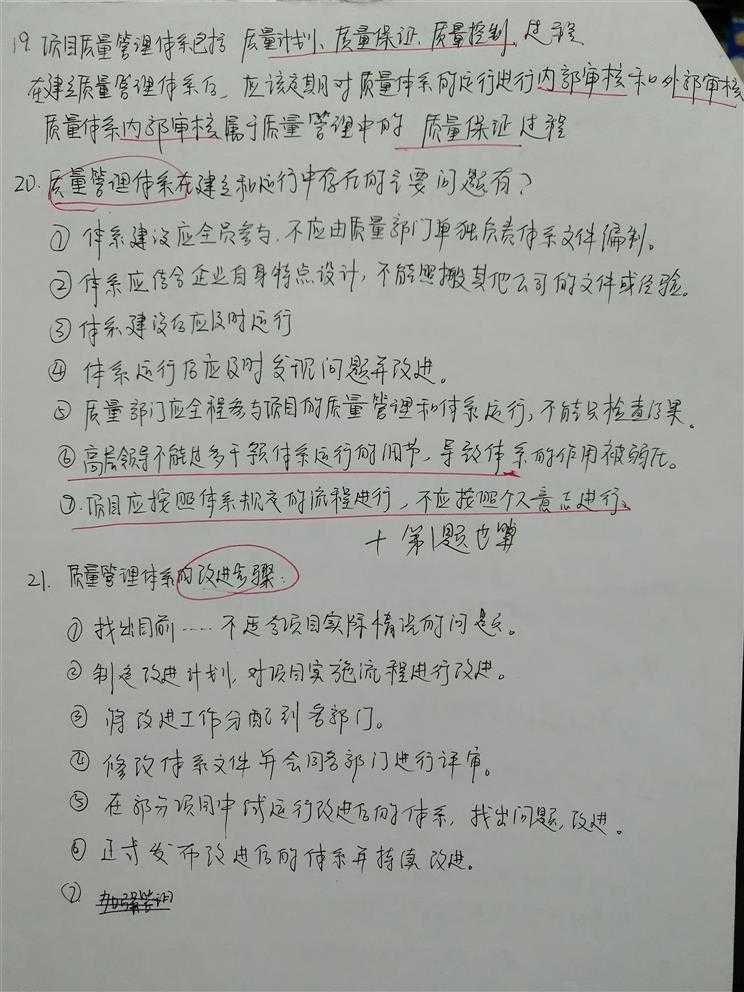 19. 项目质量管理体系包括 质量计划、质量保证、质量控制、过程
在建立质量管理体系后，应该定期对质量体系的运行进行内部审核和外部审核
质量体系内部审核属于质量管理中的 质量保证过程
20. 质量管理体系在建立和运行中存在的主要问题有？
① 体系建设应全员参与，不应由质量部门单独负责体系文件编制。
② 体系应结合企业自身特点设计，不能照搬其他公司的文件或经验。
③ 体系建设后应及时运行
④ 体系运行后应及时发现问题并改进。
⑤ 质量部门应全程参与项目的质量管理和体系运行，不能只检查结果。
⑥ 高层领导不能过多干预体系运行的细节，导致体系的作用被弱化。
⑦ 项目应按照体系规定的流程进行，不应按照个人意志进行。
+ 第1题也算
21. 质量管理体系的改进步骤：
① 找出目前……不适合项目实际情况的问题。
② 制定改进计划，对项目实施流程进行改进。
③ 将改进工作分配到各部门。
④ 修改体系文件并会同各部门进行评审。
⑤ 在部分项目中试运行改进后的体系，找出问题，改进。
⑥ 正式发布改进后的体系并持续改进。
⑦